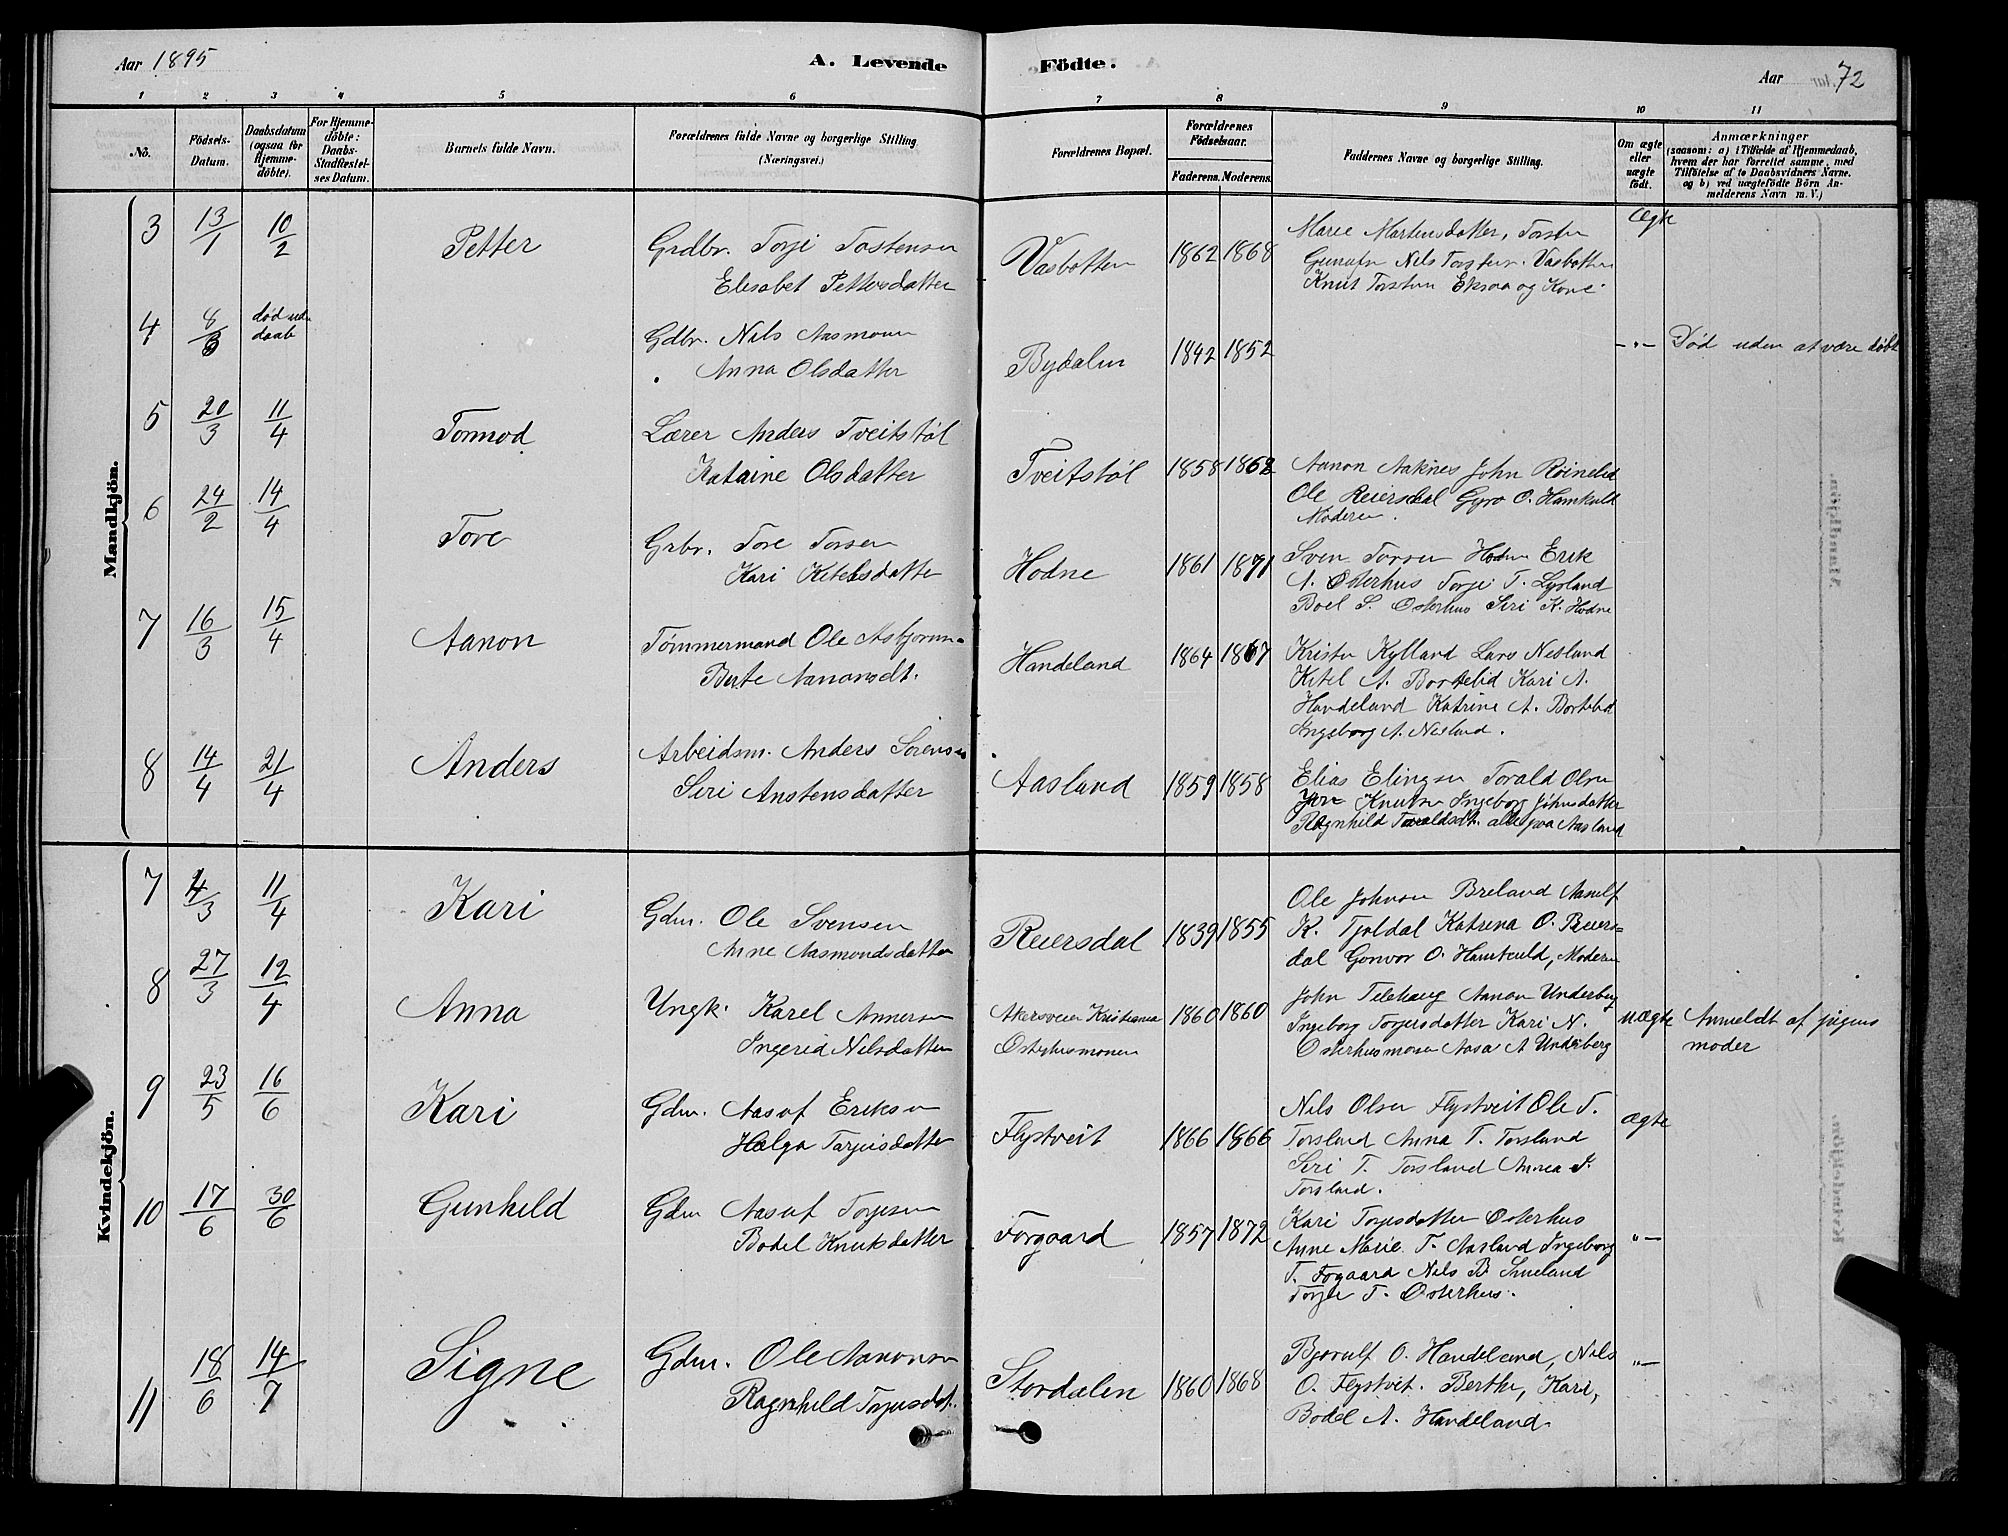 Aar 1895
A. Levende Födte.
Aar 72
1 2 3 4 5 6 7 8 9 10 11
No.
Födsels-Datum.
Daabsdatum (ogsaa for Hjemme-döbte).
For Hjemme-döbte: Daabs-Stadfæstel-ses Datum.
Barnets fulde Navn.
Forældrenes fulde Navne og borgerlige Stilling (Næringsvei.)
Forældrenes Bopæl.
Forældrenes Födselsaar.
Faderens. Moderens.
Faddernes Navne og borgerlige Stilling.
Om ægte eller uægte födt.
Anmærkninger
(saasom: a) i Tilfælde af Hjemmedaab,
hvem der har forrettet samme, med
Tilföielse af to Daabsvidners Navne.
og b) ved uægtefödte Börn An-
melderens Navn m. V.)
Mandkjön.
3 13/1 10/2 Petter Grdbr. Torje Tostensen Vasbotten 1862 1868 Marie Martensdatter, Torsten Ægte
Elisabet Pettersdatter Nils Torsten. Vasbotten
Knut Torsten Eksaa og Kone
4 8/3 død uden daab Gdbr. Nils Aasmonsen Bydalen 1842 1852 -"- Død uden at være døbt
Anna Olsdatter
5 20/3 11/4 Tormod Lærer Anders Tveitstøl Tveitstøl 1858 1862 Aanon Aaknes John Røinelid
Kataine Olsdatter Ole Reiersdal Gyro O. Hamkold
Moderen.
6 24/2 14/4 Tore Grbr. Tore Torsen Hodne 1861 1871 Sven Torsen Hodne Erik
Kari Ketelsdatter A. Osterhus Torje T. Lysland
Boel S. Osterhus Siri K. Hodne
7 16/3 15/4 Aanon Tømmermand Ole Asbjornsn Handeland 1864 1867 Kristen Kylland Lars Nesland
Berte Aanonsdt. Ketel A. Bortelid Kari A.
Handeland Katrine A. Bortelid
Ingeborg A. Nesland.
8 14/4 21/4 Anders Arbeidsm. Anders Sørensen Aasland 1859 1858 Elias Elingsen Torald Olsen
Siri Anstensdatter Knutsn Ingeborg Johnsdatter
Ragnhild Taraldsdt. alle paa Aasland
Kvindekjön.
7 4/3 11/4 Kari Gdm. Ole Svensen Reiersdal 1839 1855 Ole Johnsen Breland Aanulf
Anne Aasmondsdatter K. Tjoldal Katrina O. Reiers-
dal Gonvor O. Hamkold, Moderen
8 27/3 12/4 Anna Ungk. Karel Annersen Akersveien Kristiania 1860 1860 John Telehaug Aanon Underberg uægte Anmeldt af pigens
Ingerid Nilsdatter Osterhusmonen Ingeborg Torjersdatter Kari N. moder
Osterhusmonen Aasa A Underberg
9 23/5 16/6 Kari Gdm. Aasuf Eriksen Flystveit 1866 1866 Nils Olsen Flystveit Ole T. Ægte
Helga Tarjeisdatter Torsland Anna T. Torsland
Siri T. Torsland Annea T.
Torsland.
10 17/6 30/6 Gunhild Gdm Aasuf Torjesen Forgaard 1857 1872 Kari Torjesdatter Osterhus "-
Bodel Knutsdatter Anne Marie T. Aasland Ingeborg
T. Fogaard Nils B Smeland
Torje T. Osterhus.
11 18/6 14/7 Signe Gdm. Ole Aanonsen Stordalen 1860 1868 Bjørnulf O. Handeland, Nils "-
Ragnhild Torjusdat. O. Flystveit. Berthe, Kari,
Bodel A. Handeland.